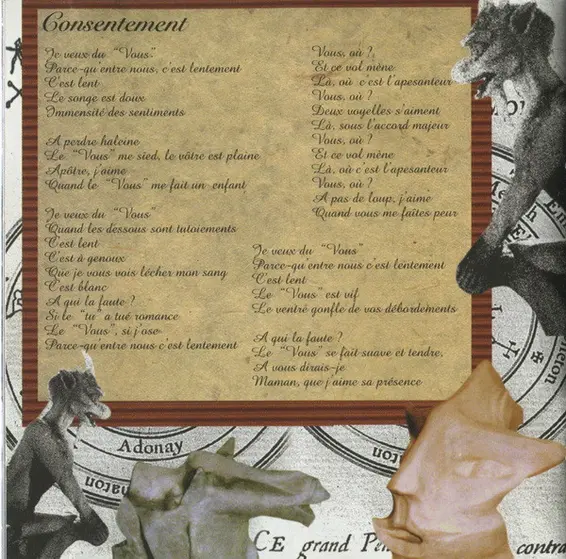 Consentement
Je veux du "Vous"
Parce-qu'entre nous, c'est lentement
C'est lent
Le songe est doux
Immensité des sentiments
A perdre haleine
Le "Vous" me sied, le vôtre est plaine
Apôtre, j'aime
Quand le "Vous" me fait un enfant
Je veux du "Vous"
Quand les dessous sont tutoiements
C'est lent
C'est à genoux
Que je vous vois lécher mon sang
C'est blanc
A qui la faute ?
Si le "tu" a tué romance
Le "Vous", si j'ose
Parce-qu'entre nous c'est lentement
Vous, où ?
Et ce vol mène
Là, où c'est l'apesanteur
Vous, où ?
Deux voyelles s'aiment
Là, sous l'accord majeur
Vous, où ?
Et ce vol mène
Là, où c'est l'apesanteur
Vous, où ?
A pas de loup, j'aime
Quand vous me faîtes peur
Je veux du "Vous"
Parce-qu'entre nous c'est lentement
C'est lent
Le "Vous" est vif
Le ventre gonfle de vos débordements
A qui la faute ?
Le "Vous" se fait suave et tendre,
A vous dirais-je
Maman, que j'aime sa présence
Adonay
CE grand
contra